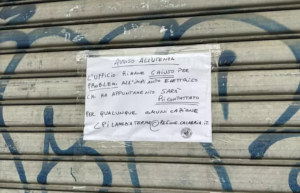 AVVISO ALL'UTENZA
L'UFFICIO RIMANE CHIUSO PER
PROBLEMI ALL'IMPIANTO ELETTRICO
CHI HA APPUNTAMENTO SARÀ
RICONTATTATO
PER QUALUNQUE COMUNICAZIONE
CPILAMEZIATERME@REGIONE.CALABRIA.IT